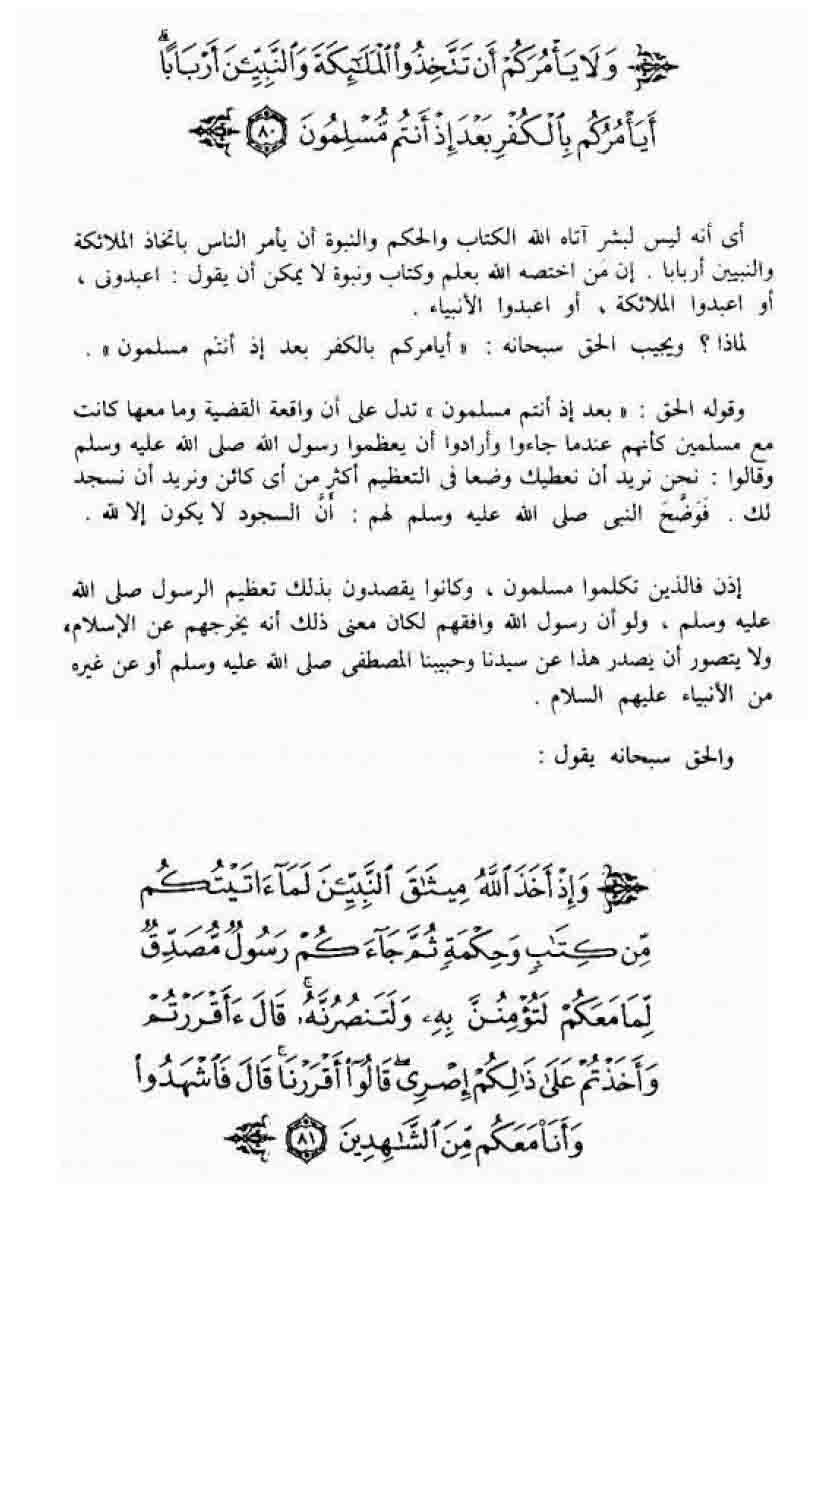 وَلَا يَأْمُرَكُمْ أَن تَتَّخِذُوا۟ ٱلْمَلَـٰٓئِكَةَ وَٱلنَّبِيِّـۧنَ أَرْبَابًا ۗ
أَيَأْمُرُكُم بِٱلْكُفْرِ بَعْدَ إِذْ أَنتُم مُّسْلِمُونَ ٨٠
أى أنه ليس لبشر آتاه الله الكتاب والحكم والنبوة أن يأمر الناس باتخاذ الملائكة
والنبيين أربابا . إن مَن اختصه الله بعلم وكتاب ونبوة لا يمكن أن يقول : اعبدونى ،
أو اعبدوا الملائكة ، أو اعبدوا الأنبياء .
لماذا ؟ ويجيب الحق سبحانه : « أيامركم بالكفر بعد إذ أنتم مسلمون » .
وقوله الحق : « بعد إذ أنتم مسلمون » تدل على أن واقعة القضية وما معها كانت
مع مسلمين كأنهم عندما جاءوا وأرادوا أن يعظموا رسول الله صلى الله عليه وسلم
وقالوا : نحن نريد أن نعطيك وضعا فى التعظيم أكثر من أى كائن ونريد أن نسجد
لك . فَوَضَّحَ النبى صلى الله عليه وسلم لهم : أَنَّ السجود لا يكون إلا لله .
إذن فالذين تكلموا مسلمون ، وكانوا يقصدون بذلك تعظيم الرسول صلى الله
عليه وسلم ، ولو أن رسول الله وافقهم لكان معنى ذلك أنه يخرجهم عن الإسلام،
ولا يتصور أن يصدر هذا عن سيدنا وحبيبنا المصطفى صلى الله عليه وسلم أو عن غيره
من الأنبياء عليهم السلام .
والحق سبحانه يقول :
وَإِذْ أَخَذَ ٱللَّهُ مِيثَـٰقَ ٱلنَّبِيِّـۧنَ لَمَآ ءَاتَيْتُكُم
مِّن كِتَـٰبٍ وَحِكْمَةٍ ثُمَّ جَآءَكُمْ رَسُولٌ مُّصَدِّقٌ
لِّمَا مَعَكُمْ لَتُؤْمِنُنَّ بِهِۦ وَلَتَنصُرُنَّهُۥ ۚ قَالَ ءَأَقْرَرْتُمْ
وَأَخَذْتُمْ عَلَىٰ ذَٰلِكُمْ إِصْرِى ۖ قَالُوٓا۟ أَقْرَرْنَا ۚ قَالَ فَٱشْهَدُوا۟
وَأَنَا۠ مَعَكُم مِّنَ ٱلشَّـٰهِدِينَ ٨١